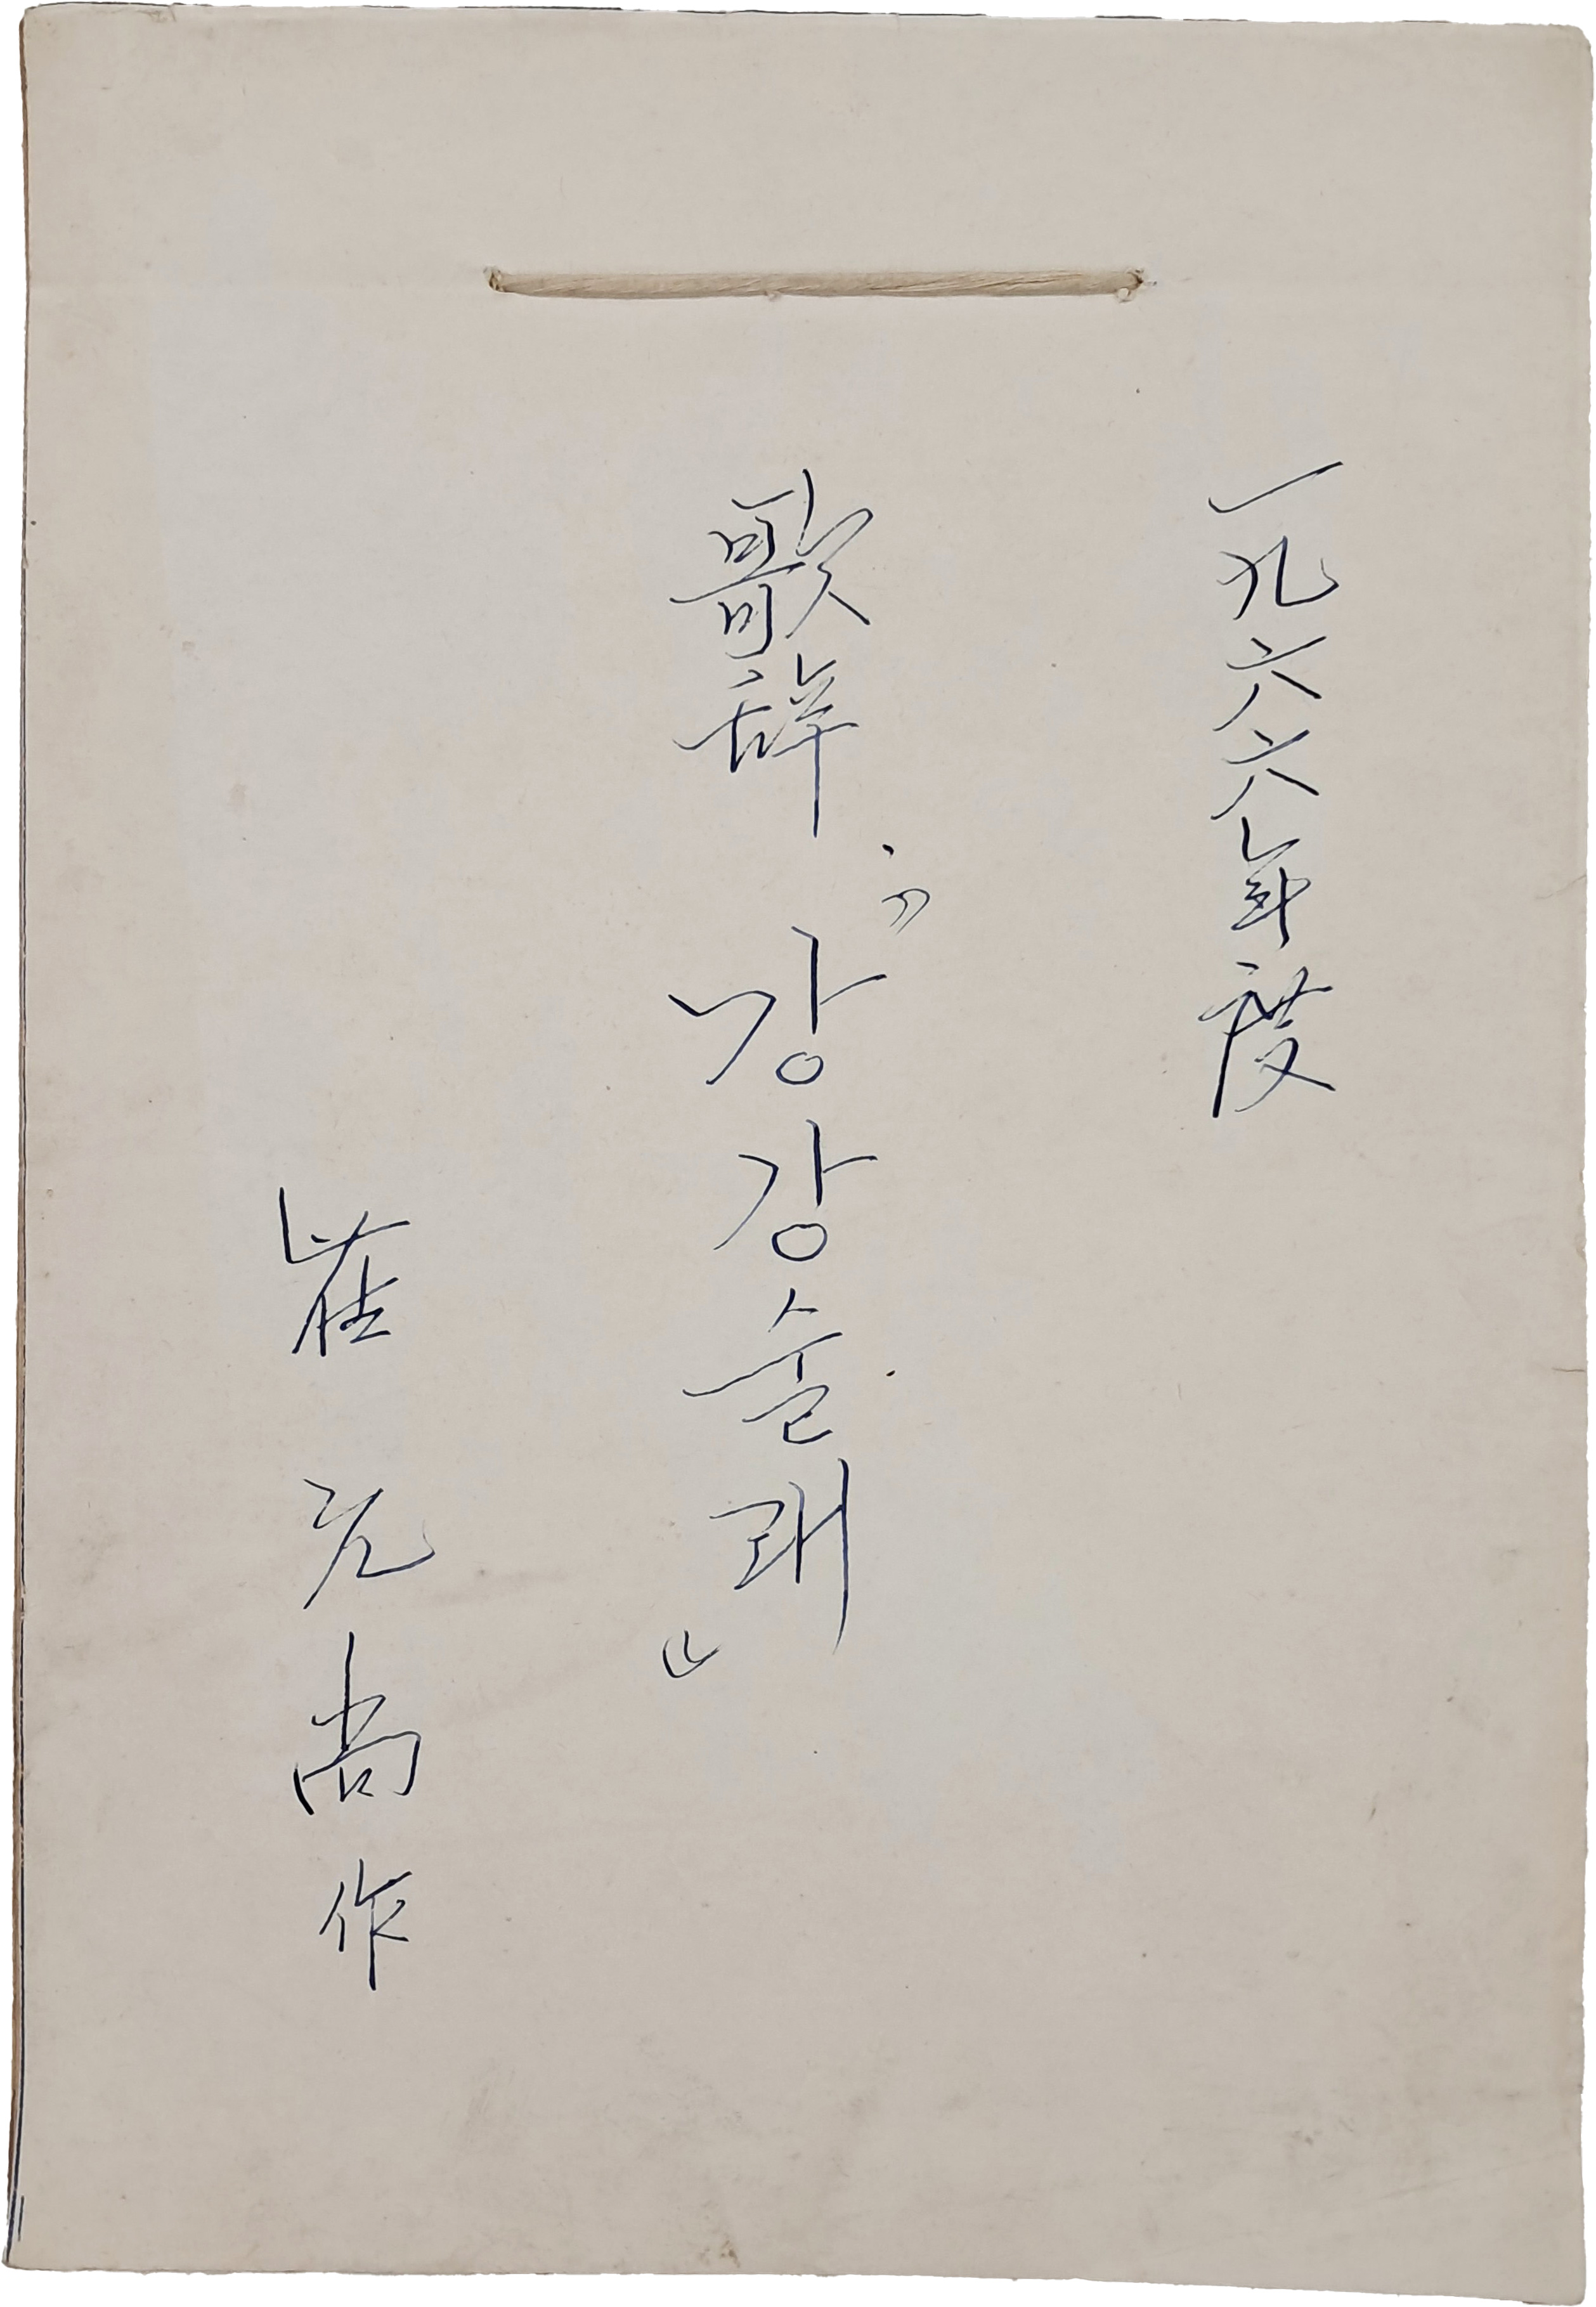 一九六六年度
歌辞 "강강술래"
崔元尚作